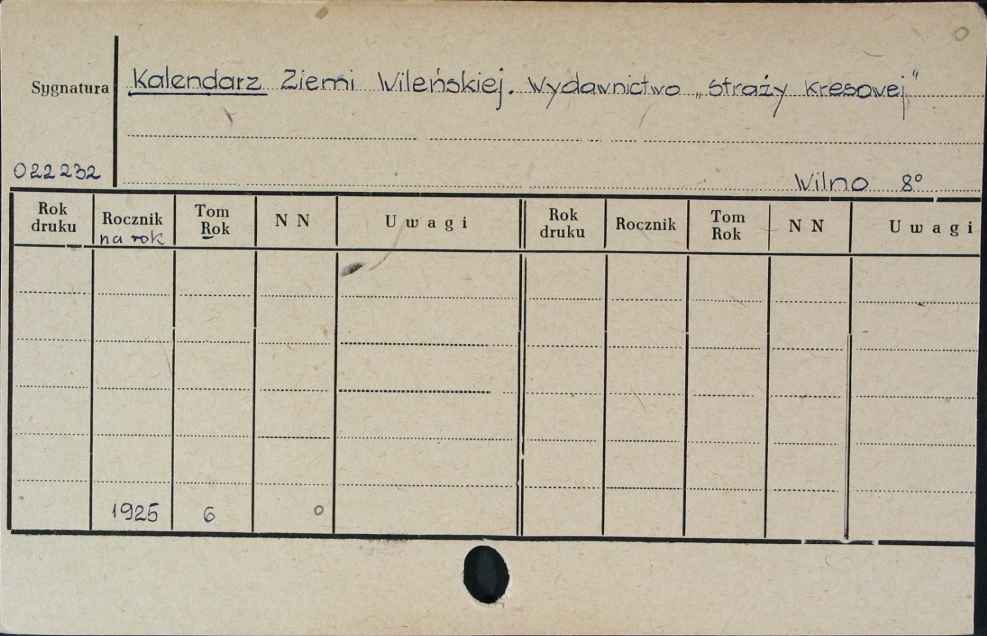 Sygnatura Kalendarz Ziemi Wileńskiej. Wydawnictwo „Straży Kresowej"
022232
Wilno 8°
Rok druku Rocznik na rok Tom Rok N N Uwagi Rok druku Rocznik Tom Rok N N Uwagi
1925 6 0